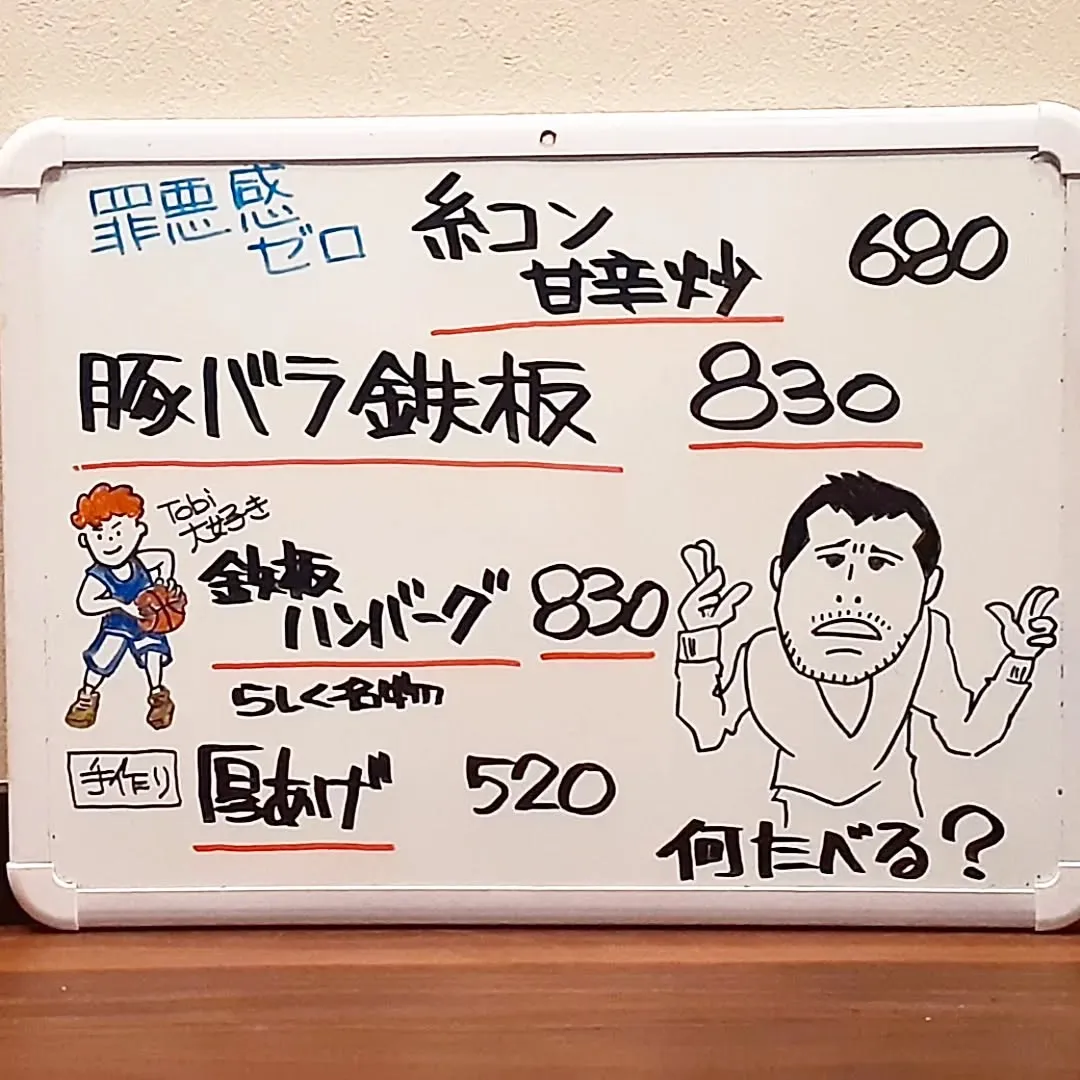 罪悪感
ゼロ
糸コン
甘辛炒
680
豚バラ鉄板 830
Tobi
大好き
鉄板
ハンバーグ 830
らしく名物
手作り 厚あげ 520
何たべる？